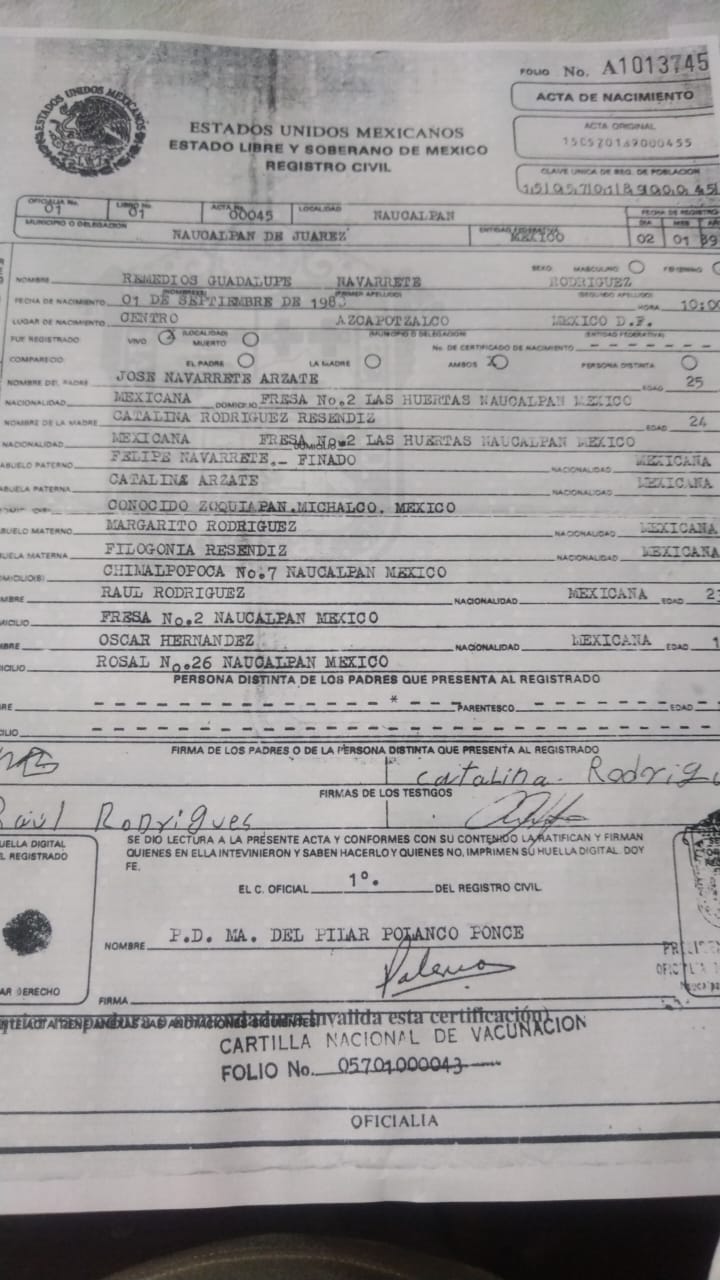 FOLIO No. A1013745
ACTA DE NACIMIENTO
ESTADOS UNIDOS MEXICANOS
ESTADOS UNIDOS MEXICANOS
ESTADO LIBRE Y SOBERANO DE MEXICO
REGISTRO CIVIL
ACTA ORIGINAL
CLAVE UNICA DE REG. DE POBLACION
OFICIALIA No. 01 LIBRO No. 01 ACTA No. 00045 LOCALIDAD NAUCALPAN FECHA DE REGISTRO
MUNICIPIO O DELEGACION NAUCALPAN DE JUAREZ ENTIDAD FEDERATIVA MEXICO DIA 02 MES 01 89
SEXO: MASCULINO FEMENINO
NOMBRE REMEDIOS GUADALUPE NAVARRETE RODRIGUEZ
(NOMBRE(S)) (PRIMER APELLIDO) (SEGUNDO APELLIDO)
FECHA DE NACIMIENTO 01 DE SEPTIEMBRE DE 1983 HORA 10:00
LUGAR DE NACIMIENTO CENTRO AZCAPOTZALCO MEXICO D.F.
(LOCALIDAD) (MUNICIPIO O DELEGACION) (ENTIDAD FEDERATIVA)
FUE REGISTRADO VIVO X MUERTO No. DE CERTIFICADO DE NACIMIENTO - - - - - - -
COMPARECIO EL PADRE LA MADRE AMBOS X PERSONA DISTINTA
NOMBRE DEL PADRE JOSE NAVARRETE ARZATE EDAD 25
NACIONALIDAD MEXICANA DOMICILIO FRESA No.2 LAS HUERTAS NAUCALPAN MEXICO
NOMBRE DE LA MADRE CATALINA RODRIGUEZ RESENDIZ EDAD 24
NACIONALIDAD MEXICANA DOMICILIO FRESA No.2 LAS HUERTAS NAUCALPAN MEXICO
ABUELO PATERNO FELIPE NAVARRETE.- FINADO NACIONALIDAD MEXICANA
ABUELA PATERNA CATALINA ARZATE NACIONALIDAD MEXICANA
CONOCIDO ZOQUIAPAN.MICHALCO. MEXICO
BUELO MATERNO MARGARITO RODRIGUEZ NACIONALIDAD MEXICANA
UELA MATERNA FILOGONIA RESENDIZ NACIONALIDAD MEXICANA
MICILIO(S) CHIMALPOPOCA No.7 NAUCALPAN MEXICO
MBRE RAUL RODRIGUEZ NACIONALIDAD MEXICANA EDAD
MICILIO FRESA No.2 NAUCALPAN MEXICO
BRE OSCAR HERNANDEZ NACIONALIDAD MEXICANA EDAD
CILIO ROSAL No.26 NAUCALPAN MEXICO
PERSONA DISTINTA DE LOS PADRES QUE PRESENTA AL REGISTRADO
RE - - - - - - - - - - - - * - - - PARENTESCO - - - - - - EDAD - -
CILIO - - - - - - - - - - - - - - - - - - - - - - - -
FIRMA DE LOS PADRES O DE LA PERSONA DISTINTA QUE PRESENTA AL REGISTRADO
Catalina. Rodrigu
FIRMAS DE LOS TESTIGOS
Raúl Rodrigues
SE DIO LECTURA A LA PRESENTE ACTA Y CONFORMES CON SU CONTENIDO LA RATIFICAN Y FIRMAN
QUIENES EN ELLA INTEVINIERON Y SABEN HACERLO Y QUIENES NO, IMPRIMEN SU HUELLA DIGITAL. DOY
FE.
UELLA DIGITAL
L REGISTRADO
EL C. OFICIAL 1°. DEL REGISTRO CIVIL
NOMBRE P.D. MA. DEL PILAR POLANCO PONCE
AR DERECHO
FIRMA
invalida esta certificación)
CARTILLA NACIONAL DE VACUNACION
FOLIO No. 05701000043
OFICIALIA